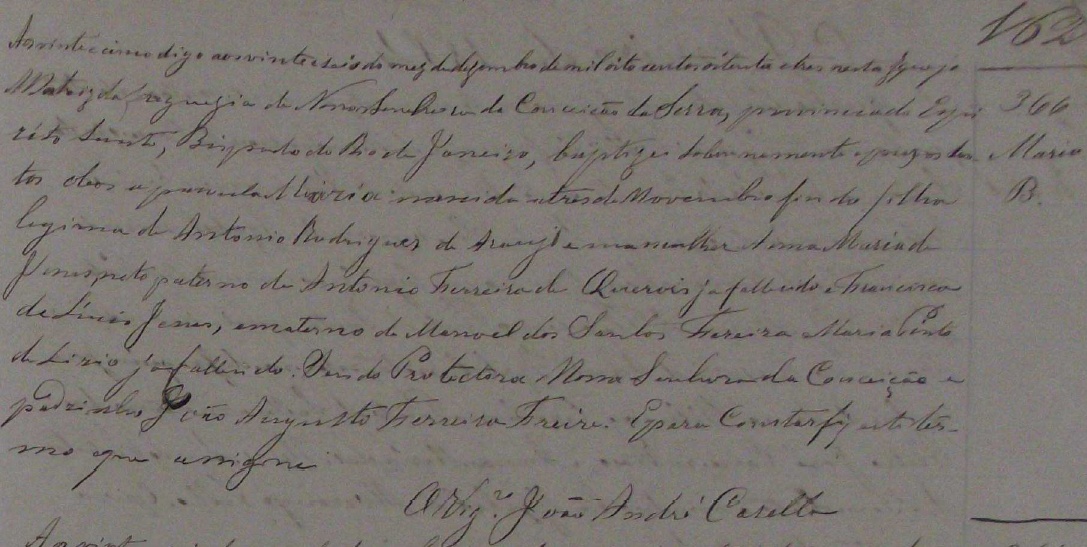 162
Aos vinte e cinco digo aos vinte e seis do mez de dezembro de mil oito centos oitenta e tres nesta Igreja
366
Matriz da freguezia de Nossa Senhora da Conceição da Serra, provincia do Espi
Maria
rito Santo, Bispado do Rio de Janeiro, baptizei solemnemente e puz os San
B.
tos oleos a parvula Maria nascida a tres de Novembro findo filha
legima de Antonio Rodrigues de Araujo e sua mulher Anna Maria de
Jesus, neto paterno de Antonio Ferreira de ja fallecido e Francisca
de Jesus, e materno de Manoel dos Santos Ferreira e Maria Pinto
de ja fallecido. Sendo Protectora Nossa Senhora da Conceição e
padrinho João Augusto Ferreira Freire. E para constar fiz este ter-
mo que assignei
O Vigr.o João André Casella